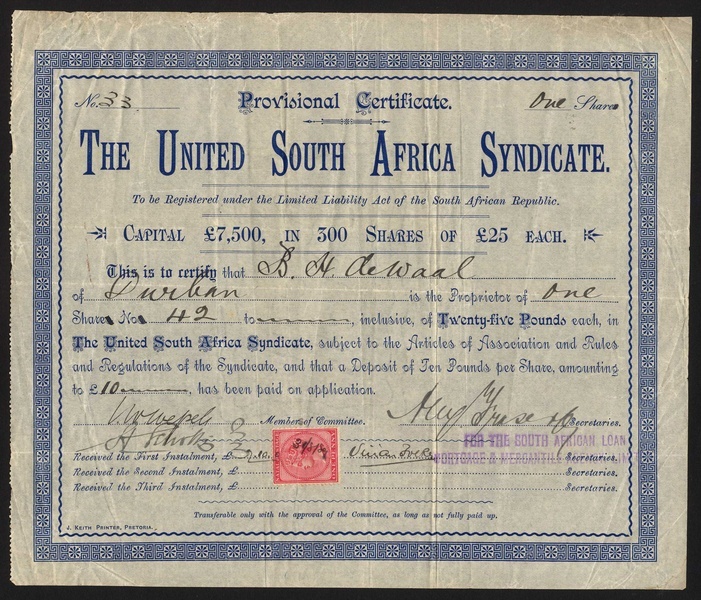 No. 33 Provisional Certificate. One Share
THE UNITED SOUTH AFRICA SYNDICATE.
To be Registered under the Limited Liability Act of the South African Republic.
CAPITAL £7,500, IN 300 SHARES OF £25 EACH.
This is to certify that B. H. deWaal
of Durban is the Proprietor of one
Share No 42 to, inclusive, of Twenty-five Pounds each, in
The United South Africa Syndicate, subject to the Articles of Association and Rules
and Regulations of the Syndicate, and that a Deposit of Ten Pounds per Share, amounting
to £10, has been paid on application.
Members of Committee. Secretaries.
FOR THE SOUTH AFRICAN LOAN
MORTGAGE & MERCANTILE
Received the First Instalment, £ Secretaries.
Received the Second Instalment, £ Secretaries.
Received the Third Instalment, £ Secretaries.
Transferable only with the approval of the Committee, as long as not fully paid up.
J. KEITH PRINTER, PRETORIA.